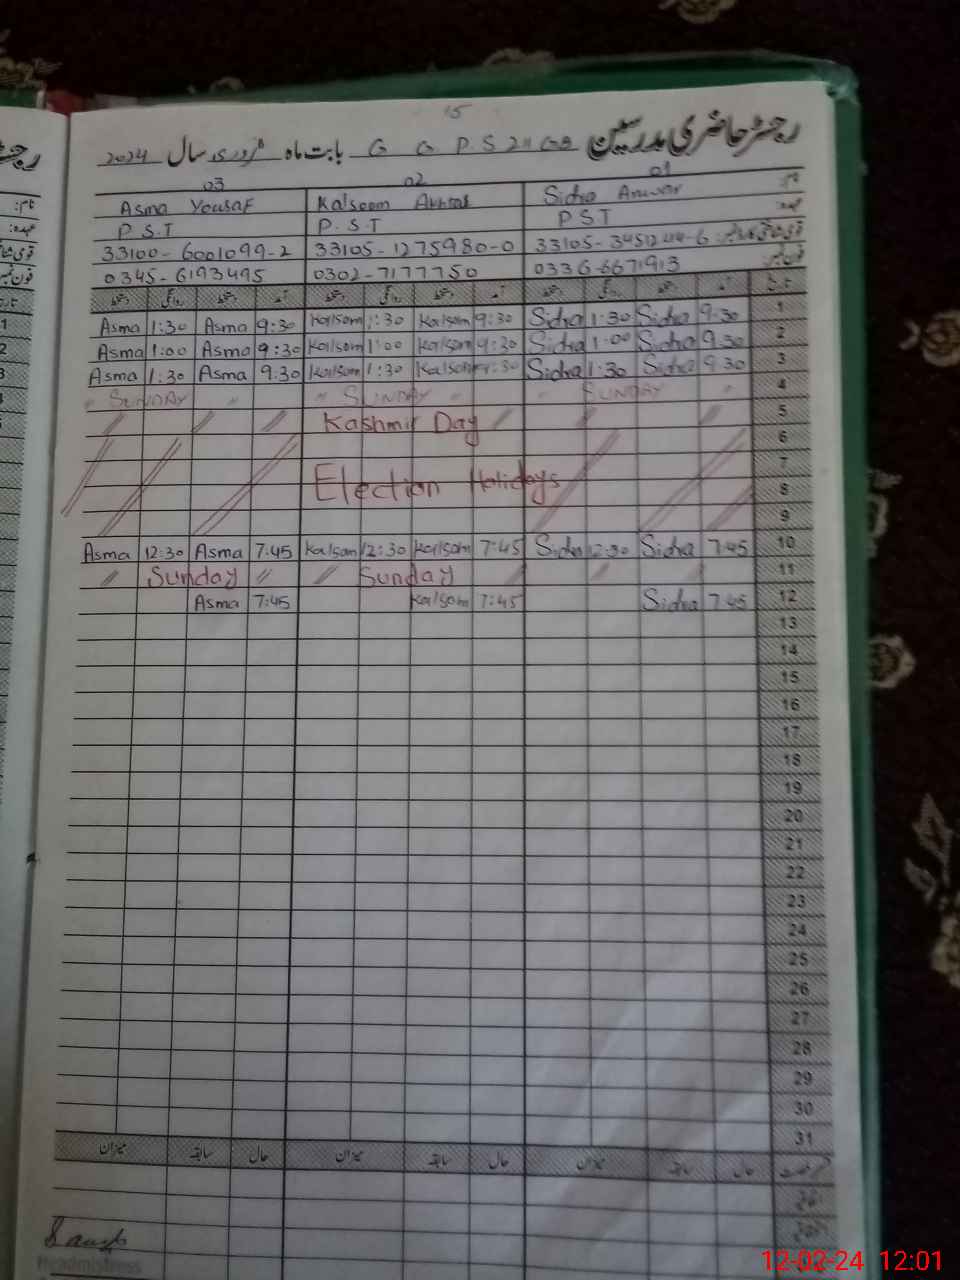 15
رجسٹر حاضری مدرسین G G P S 211 GB بابت ماہ فروری سال 2024
03 02 01
Asma Yousaf Kalsoom Akhtar Sidra Anwar نام:
P.S.T P.S.T PST عہدہ:
33100-6001099-2 33105-1275980-0 33105-3451244-6
0345-6193495 0302-7177750 0336-6671913 فون نمبر
Asma 1:30 Asma 9:30 Kalsom 1:30 Kalsom 9:30 Sidra 1:30 Sidra 9:30 1
Asma 1:00 Asma 9:30 Kalsom 1:00 Kalsom 9:30 Sidra 1:00 Sidra 9:30 2
Asma 1:30 Asma 9:30 Kalsom 1:30 Kalsom 9:30 Sidra 1:30 Sidra 9:30 3
" SUNDAY " " SUNDAY " " SUNDAY " 4
Kashmir Day 5
6
7
Election Holidays 8
9
Asma 12:30 Asma 7:45 Kalsom 12:30 Kalsom 7:45 Sidra 12:30 Sidra 7:45 10
Sunday Sunday 11
Asma 7:45 Kalsom 7:45 Sidra 7:45 12
13
14
15
16
17
18
19
20
21
22
23
24
25
26
27
28
29
30
31
میزان سابقہ حال میزان سابقہ حال میزان سابقہ حال
12-02-24 12:01